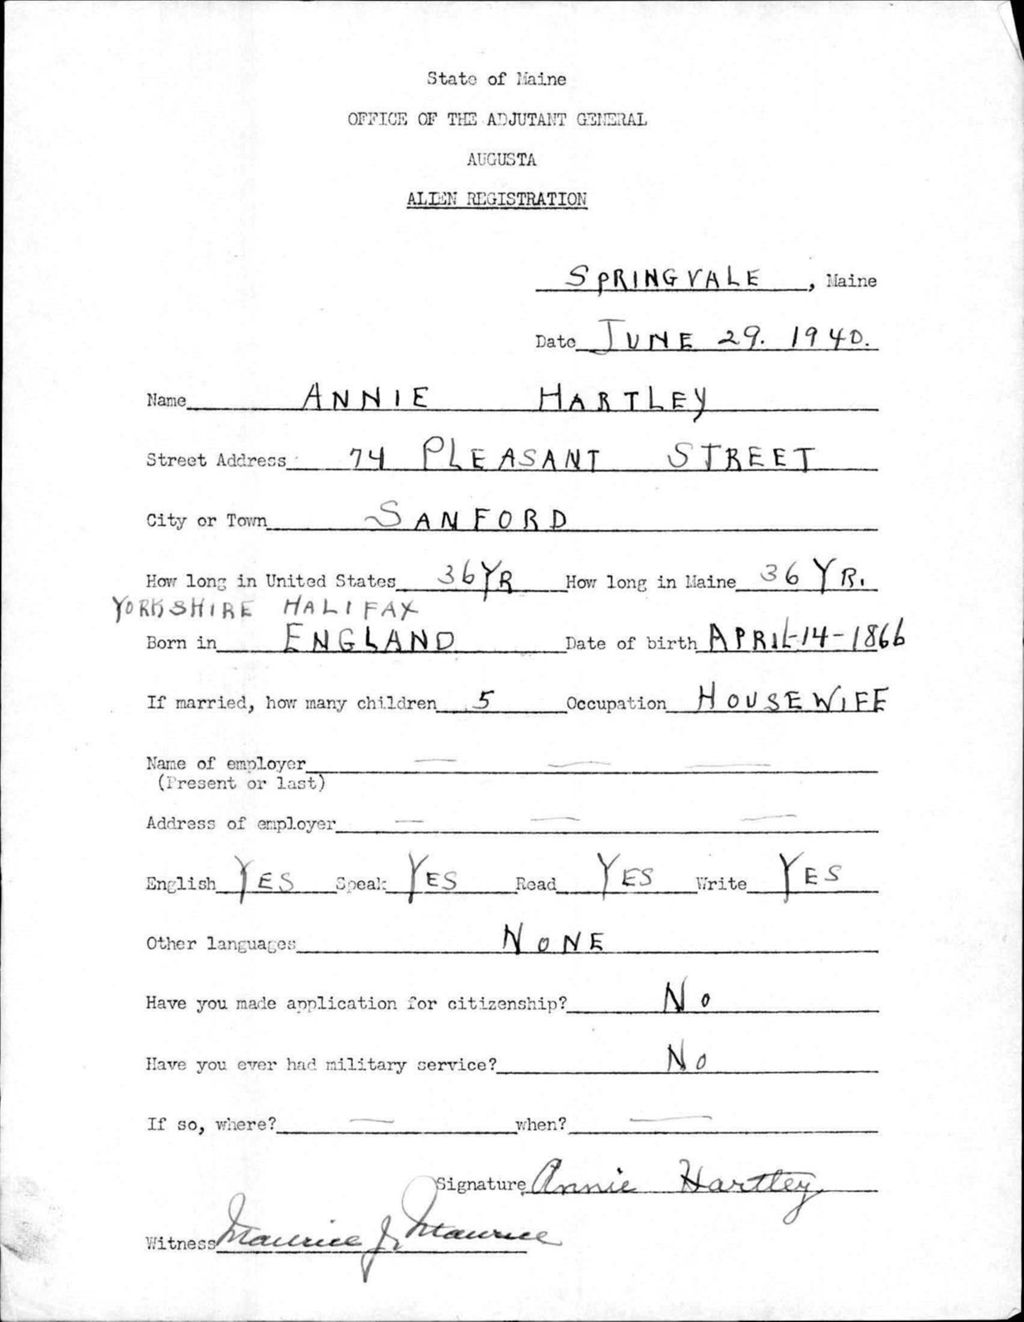 State of Maine
OFFICE OF THE ADJUTANT GENERAL
AUGUSTA
ALIEN REGISTRATION
SPRINGVALE, Maine
Date JUNE 29. 1940.
Name ANNIE HARTLEY
Street Address 74 PLEASANT STREET
City or Town SANFORD
How long in United States 36 YR How long in Maine 36 YR.
YORKSHIRE HALIFAX
Born in ENGLAND Date of birth APRIL-14-1866
If married, how many children 5 Occupation HOUSEWIFE
Name of employer — — —
(Present or last)
Address of employer — — —
English YES Speak YES Read YES Write YES
Other languages NONE
Have you made application for citizenship? No
Have you ever had military service? No
If so, where? — when? —
Signature Annie Hartley
Witness Maurice J. Maurice